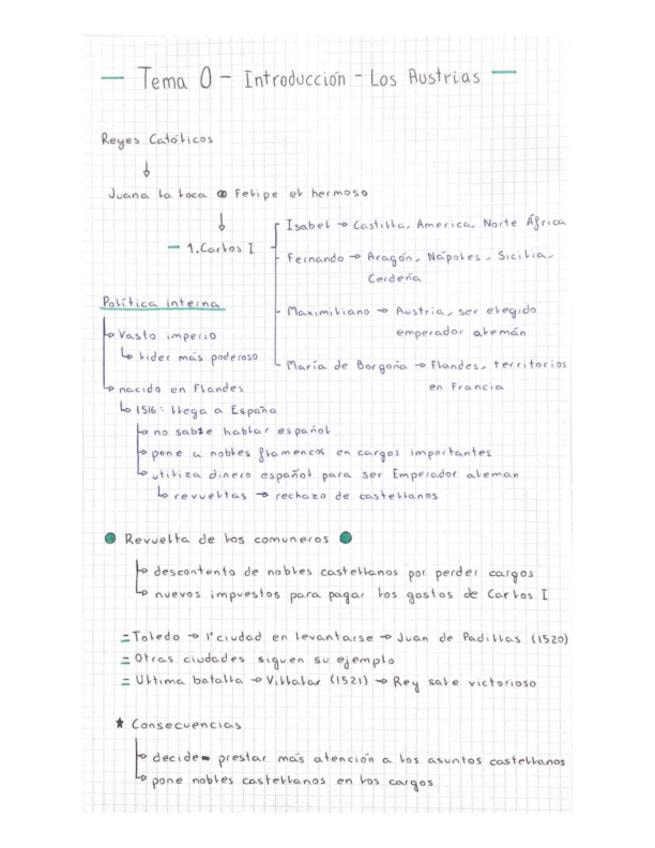 — Tema 0 - Introducción - Los Austrias —
Reyes Católicos
↓
Juana la loca ∞ Felipe el hermoso
↓
— 1. Carlos I
Isabel → Castilla, America, Norte África
Fernando → Aragón, Nápoles, Sicilia,
Cerdeña
Maximiliano → Austria, ser elegido
emperador alemán
María de Borgoña → Flandes, territorios
en Francia
Política interna
↳ Vasto imperio
↳ lider más poderoso
↳ nacido en Flandes
↳ 1516: llega a España
↳ no sabe hablar español
↳ pone a nobles flamencos en cargos importantes
↳ utiliza dinero español para ser Emperador aleman
↳ revueltas → rechazo de castellanos
● Revuelta de los comuneros ●
↳ descontento de nobles castellanos por perder cargos
↳ nuevos impuestos para pagar los gastos de Carlos I
= Toledo → 1ª ciudad en levantarse → Juan de Padillas (1520)
= Otras ciudades siguen su ejemplo
= Ultima batalla → Villalar (1521) → Rey sale victorioso
★ Consecuencias
↳ decide prestar más atención a los asuntos castellanos
↳ pone nobles castellanos en los cargos